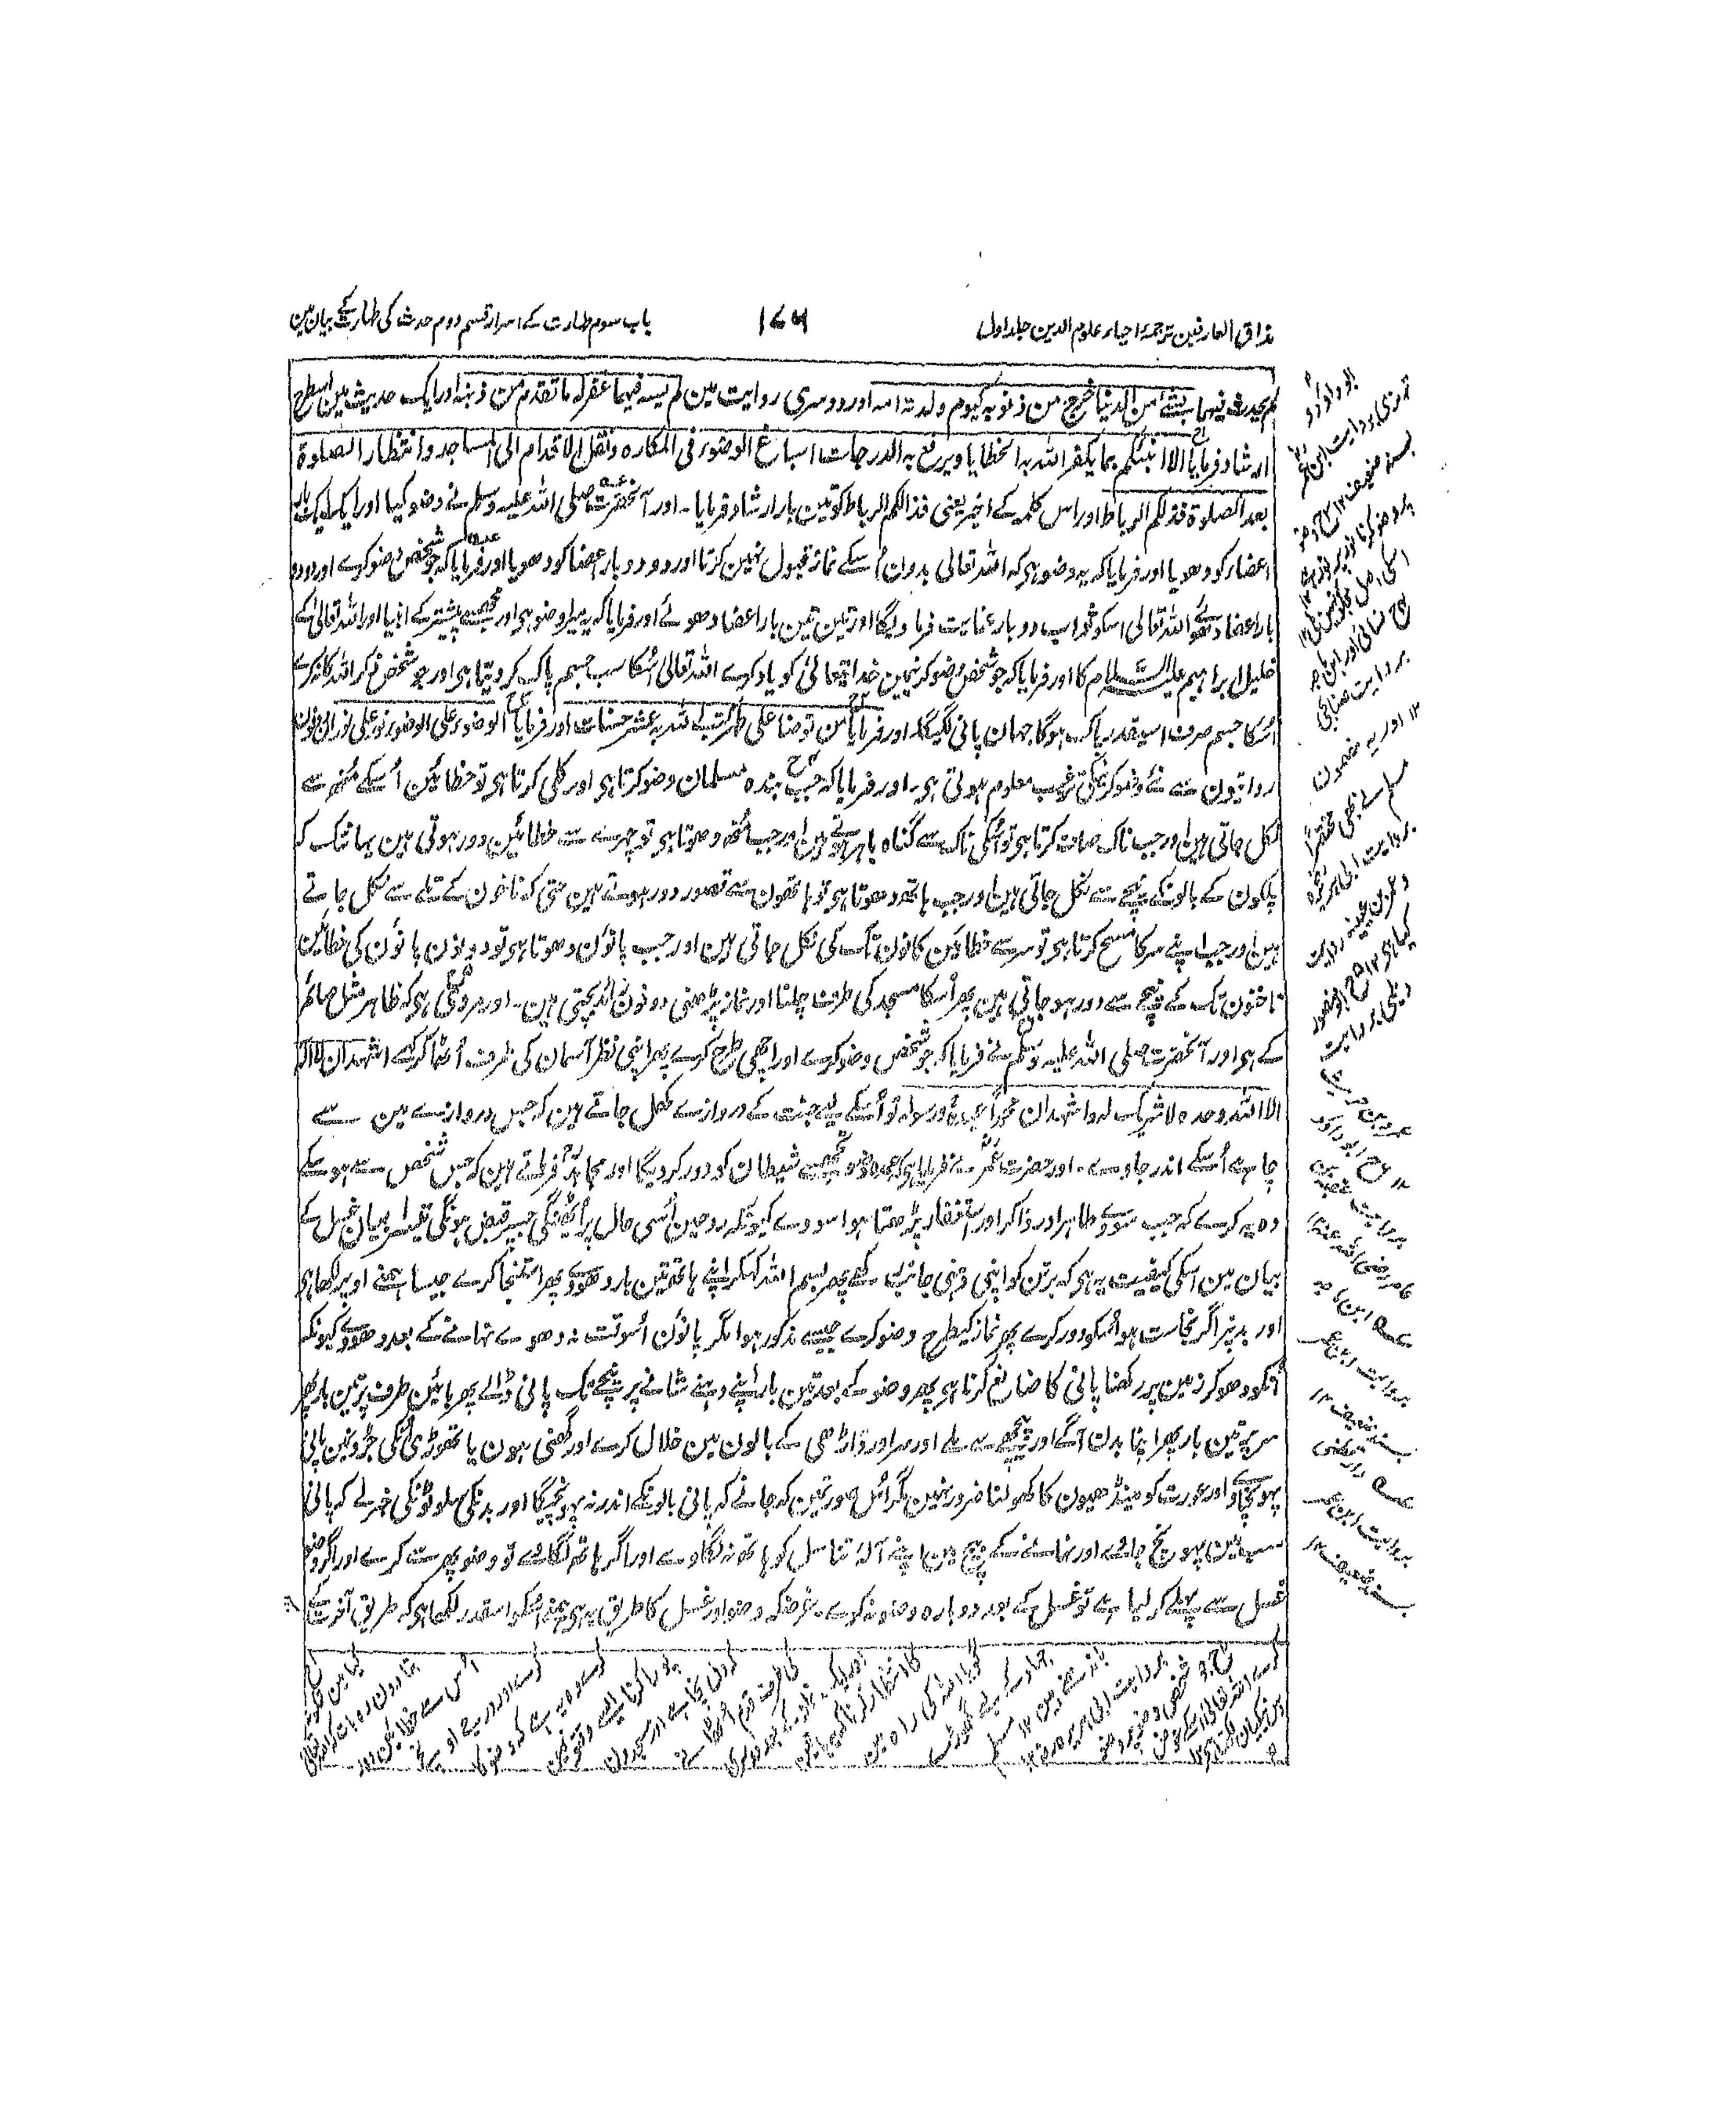 مذاق العارفین ترجمۂ احیاء علوم الدین جلد اول
۱۷۶
باب سوم طہارت کے اسرار قسم دوم حدث کی طہارت کے بیان مین
لم یحدث فیہما بشئے من الدنیا خرج من ذنوبہ کیوم ولدتہ امہ اور دوسری روایت مین لم یسہ فیہما غفر لہ ما تقدم من ذنبہ اور ایک حدیث مین اسطرح
ارشاد فرمایا الا انبئکم بما یکفر اللہ بہ الخطایا ویرفع بہ الدرجات اسباغ الوضوء فی المکارہ ونقل الاقدام الی المساجد وانتظار الصلوۃ
بعد الصلوۃ فذلکم الرباط اور اس کلمہ کے اخیر یعنی فذالکم الرباط کو تین بار ارشاد فرمایا۔ اور آنحضرت صلی اللہ علیہ وسلم نے وضو کیا اور ایک ایک بار
اعضاء کو دھویا اور فرمایا کہ یہ وضو ہی کہ اللہ تعالی بدون اُسکے نماز قبول نہین کرتا اور دو دو بار اعضا کو دھویا اور فرمایا کہ جو شخص وضو کرے اور دو دو
بار اعضا دھوئے اللہ تعالی اسکو ثواب دو بار عنایت فرماویگا اور تین تین بار اعضا دھوئے اور فرمایا کہ یہ میرا وضو ہی اور مجھسے پیشتر کے انبیا اور اللہ تعالیٰ کے
خلیل ابراہیم علیہ السلام کا اور فرمایا کہ جو شخص وضو کرنیمین خدا یتعالیٰ کو یاد کرے اللہ تعالی اُسکا سب جسم پاک کر دیتا ہی اور جو شخص ذکر اللہ کا نکرے
اُسکا جسم صرف اسیقدر پاک ہوگا جہان پانی لگیگا۔ اور فرمایا من توضا علی طہر کتب اللہ بہ عشر حسنات اور فرمایا الوضوء علی الوضوء نور علی نور ان دونون
روایتون سے نئے وضو کرنیکی ترغیب معلوم ہوتی ہی۔ اور فرمایا کہ جب بندہ مسلمان وضو کرتا ہی اور کلی کرتا ہی تو خطائین اُسکے مُنھ سے
نکل جاتی ہین اور جب ناک صاف کرتا ہی تو اُسکی ناک سے گناہ باہر ہوتے ہین اور جب مُنھ دھوتا ہی تو چہرے سے خطائین دور ہوتی ہین یہانتک کہ
پلکون کے بالونکے نیچے سے نکل جاتی ہین اور جب ہاتھ دھوتا ہی تو ہاتھون سے قصور دور ہوتے ہین حتی کہ ناخون کے تلے سے نکل جاتے
ہین اور جب اپنے سر کا مسح کرتا ہی تو سر سے خطائین کانون تک کی نکل جاتی ہین اور جب پانوُن دھوتا ہی تو دونون پانوُن کی خطائین
ناخنون تک کے نیچے سے دور ہو جاتی ہین پھر اُسکا مسجد کی طرف چلنا اور نماز پڑھنی دونون زائد بچتی ہین۔ اور مروی ہی کہ طاہر مثل صائم
کے ہی اور آنحضرت صلی اللہ علیہ وسلم نے فرمایا کہ جو شخص وضو کرے اور اچھی طرح کرے پھر اپنی نظر آسمان کی طرف اُٹھا کر کہے اشہد ان لا الٰہ
الا اللہ وحدہ لا شریک لہ واشہد ان محمدا عبدہ ورسولہ تو اُسکے لیے جنت کے دروازے کھل جاتے ہین کہ جس دروازے مین سے
چاہے اُسکے اندر جاوے۔ اور حضرت عمرؓ نے فرمایا ہی کہ عمدہ وضو تجھسے شیطان کو دور کر دیگا اور مجاہدؒ فرماتے ہین کہ جس شخص سے ہو سکے
وہ یہ کرے کہ جب سووے طاہر اور ذاکر اور استغفار پڑھتا ہوا سووے کیونکہ روحین اُسی حال پر اُٹھینگی جسپر قبض ہونگی تیسرا بیان غسل کے
بیان مین اسکی کیفیت یہ ہی کہ برتن کو اپنی دہنی جانب رکھے پھر بسم اللہ کہکر اپنے ہاتھ تین بار دھووے پھر استنجا کرے جیسا ہمنے اوپر لکھا ہی
اور بدنپر اگر نجاست ہو اُسکو دور کرے پھر نماز کیطرح وضو کرے جیسے مذکور ہوا مگر پانوُن اُسوقت نہ دھوے نہانے کے بعد دھووے کیونکہ
اُنکو دھو کر زمین پر رکھنا پانی کا ضائع کرنا ہی پھر وضو کے بعد تین بار اپنے دہنے شانے پر نیچے تک پانی ڈالے پھر بائین طرف پر تین بار پھر
سر پر تین بار پھر اپنا بدن آگے اور پیچھے سے ملے اور سر اور ڈاڑھی کے بالون مین خلال کرے اور گھنی ہون یا تھوڑی اُنکی جڑونمین پانی
پہونچاوے اور عورت کو مینڈھیون کا کھولنا ضرور نہین مگر اُس صورتمین کہ جانے کہ پانی بالونکے اندر نہ پہونچیگا اور بدنکی سلوٹونکی خبر لے کہ پانی
سبمین پہونچ جاوے اور نہانے کے بیچ مین اپنے آلہٗ تناسل کو ہاتھ نہ لگاوے اور اگر ہاتھ لگاوے تو وضو پھر سے کرے اور اگر وضو
غسل سے پہلے کر لیا ہے تو غسل کے بعد دوبارہ وضو نہ کرے۔ غرضکہ وضو اور غسل کا طریق یہ ہی ہمنے اُسکو اسقدر لکھا ہی کہ طریق آخرت کے
ابو داؤد و
ترمذی بروایت ابن عمرؓ
بسند ضعیف ۱۲
بروایت صنابحی
۱۲ اور یہ مضمون
مسلم نے بھی مختصراً
بروایت ابی ہریرہؓ
دیلمی بروایت
عمرو بن حریث
۱۲ ابو داؤد
بروایت عقبہ بن
عامر رضی اللہ عنہ ۱۲
عہ ابن ماجہ
بروایت ابن عمر
بسند ضعیف ۱۲
عہ دارقطنی
بروایت ابن عمر
بسند ضعیف ۱۲